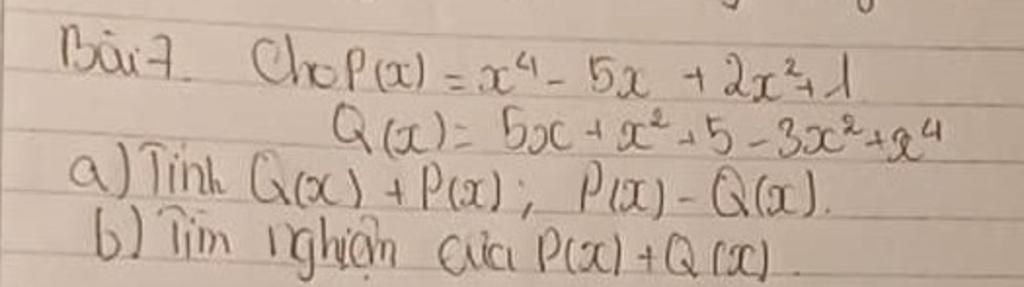 Bài 7. Cho P(x) = x⁴ - 5x + 2x² + 1
Q(x) = 5x + x² + 5 - 3x² + x⁴
a) Tính Q(x) + P(x); P(x) - Q(x).
b) Tìm nghiệm của P(x) + Q(x).